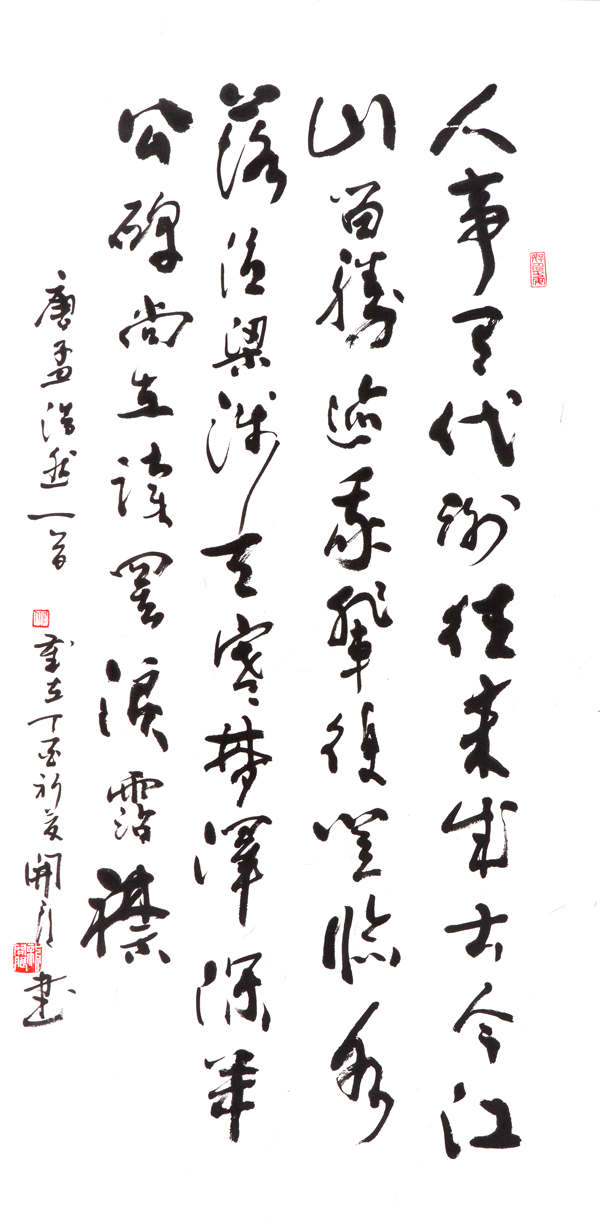 人事有代謝往來成古今江
山留勝迹我輩復登臨水
落漁梁淺天寒夢澤深羊
公碑尚在讀罷淚霑襟
唐孟浩然一首
歲在丁酉初夏開書